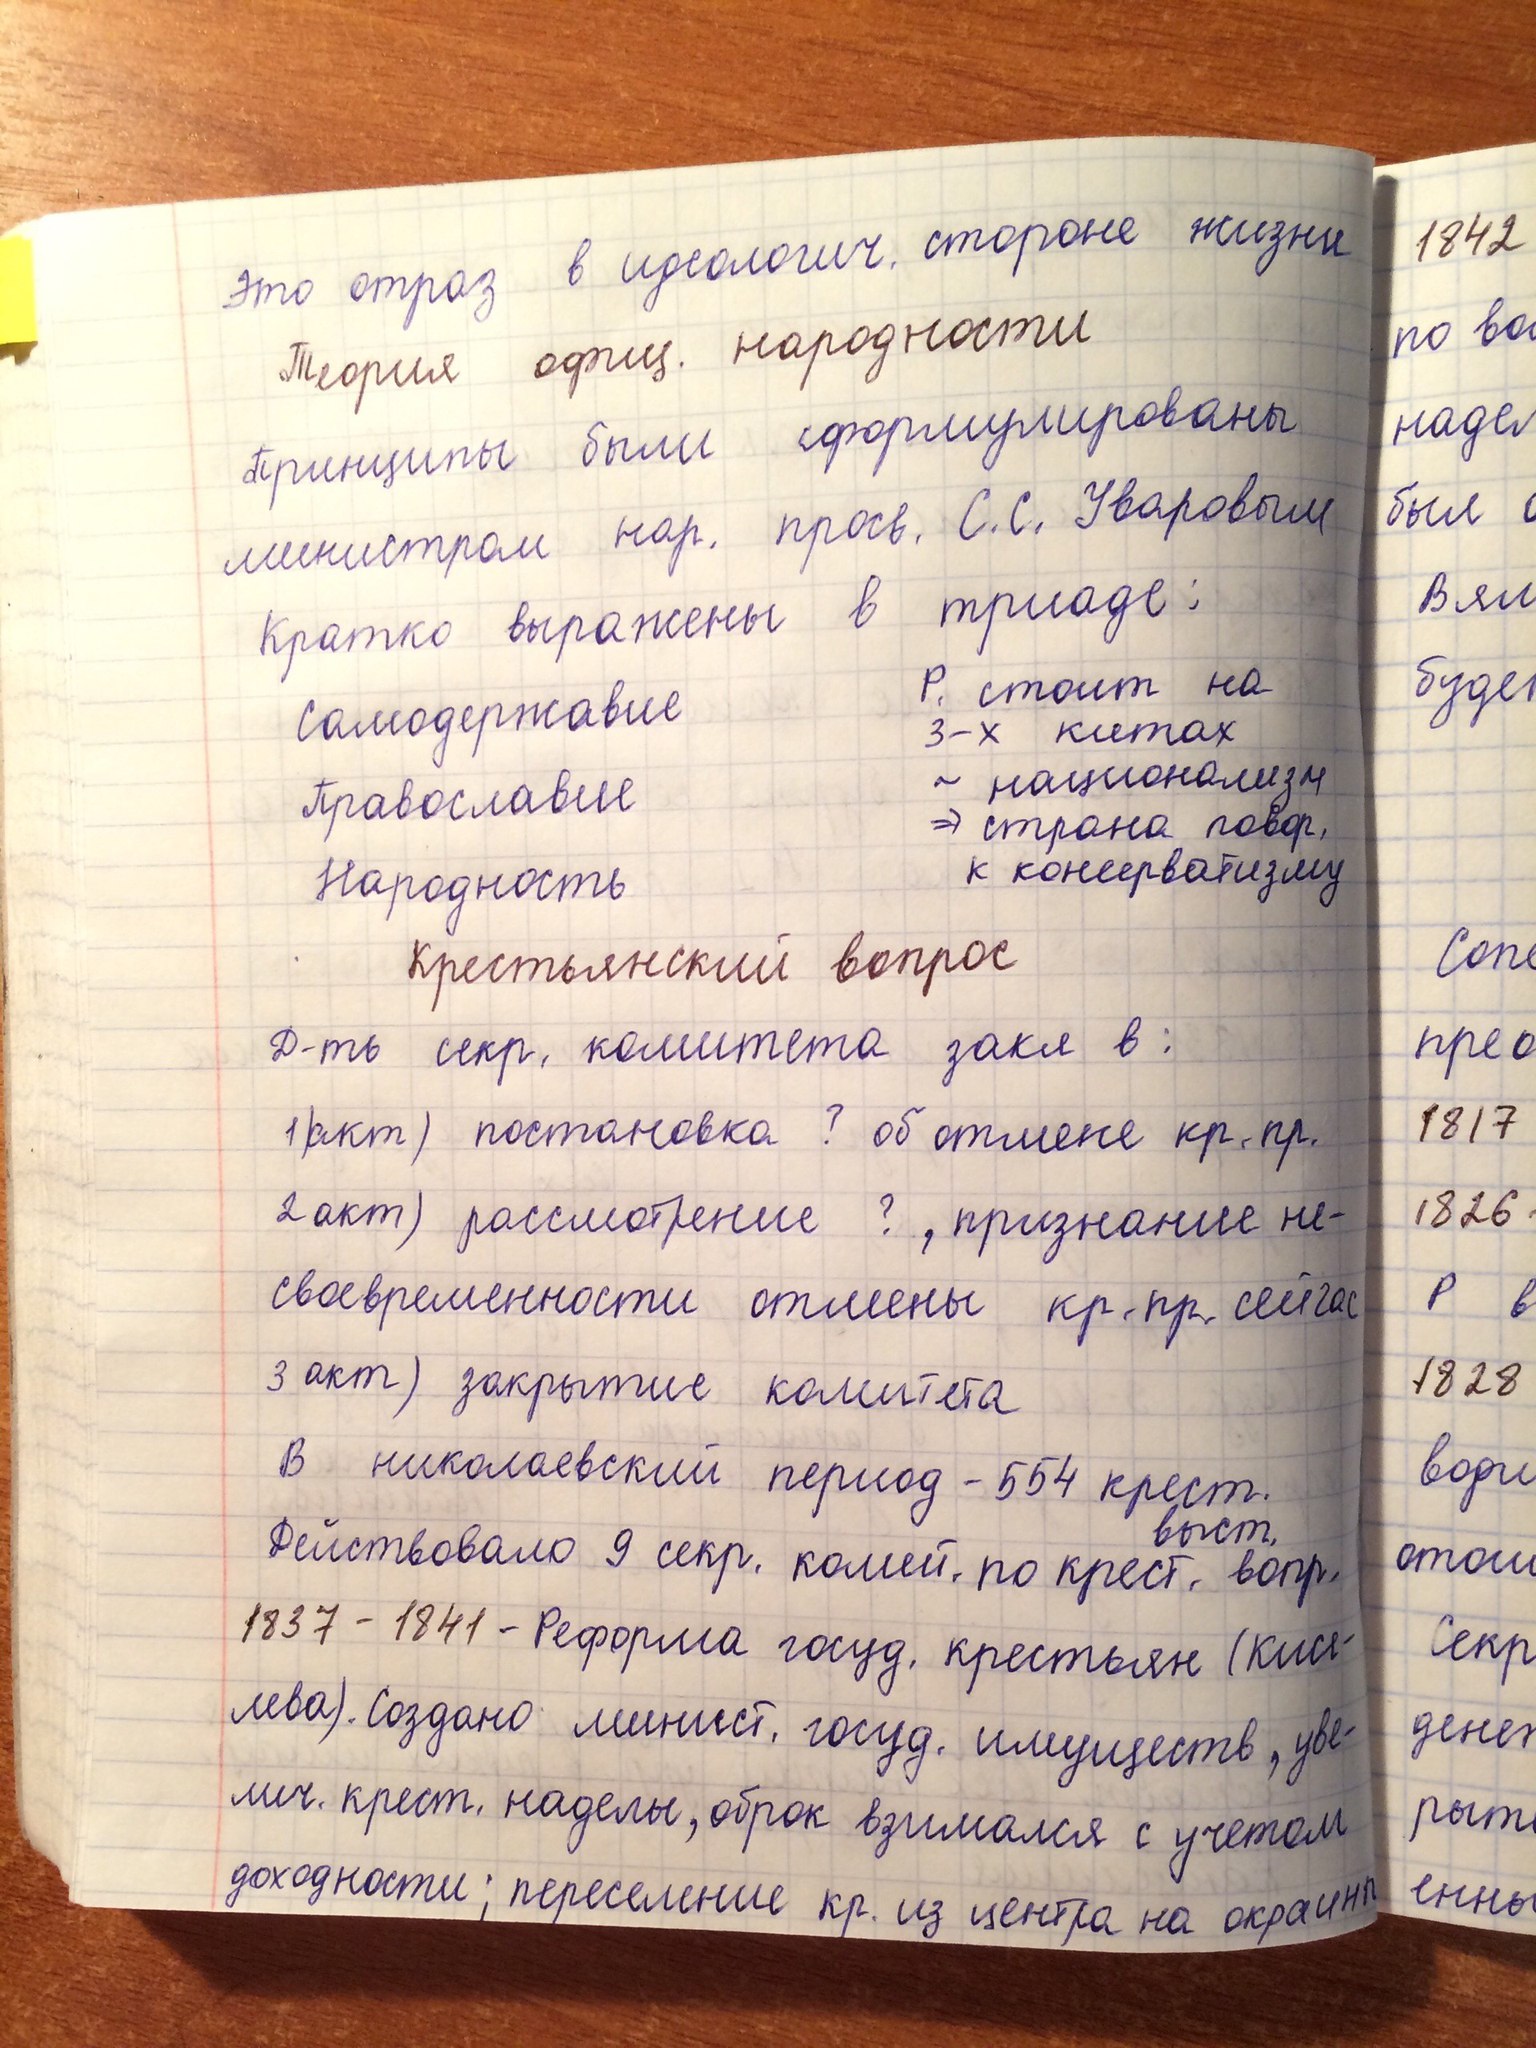 Это отраз в идеологич. стороне жизни
Теория офиц. народности
Принципы были сформулированы
министром нар. просв. С.С. Уваровым
Кратко выражены в триаде:
Самодержавие
Православие
Народность
Р. стоит на
3-х китах
~ национализм
⇒ страна повор.
к консерватизму
Крестьянский вопрос
Д-ть секр. комитета закл в:
1 акт) постановка ? об отмене кр. пр.
2 акт) рассмотрение ?, признание не-
своевременности отмены кр. пр. сейчас
3 акт) закрытие комитета
В николаевский период - 554 крест.
выст.
Действовало 9 секр. комит. по крест. вопр.
1837 - 1841 - Реформа госуд. крестьян (Кисе-
лева). Создано минист. госуд. имуществ, уве-
лич. крест. наделы, оброк взимался с учетом
доходности; переселение кр. из центра на окраины
1842
по
надел
был
буде
Сопе
прео
1817
1826
Р в
1828
води
Секр
денеж
рыт
енны